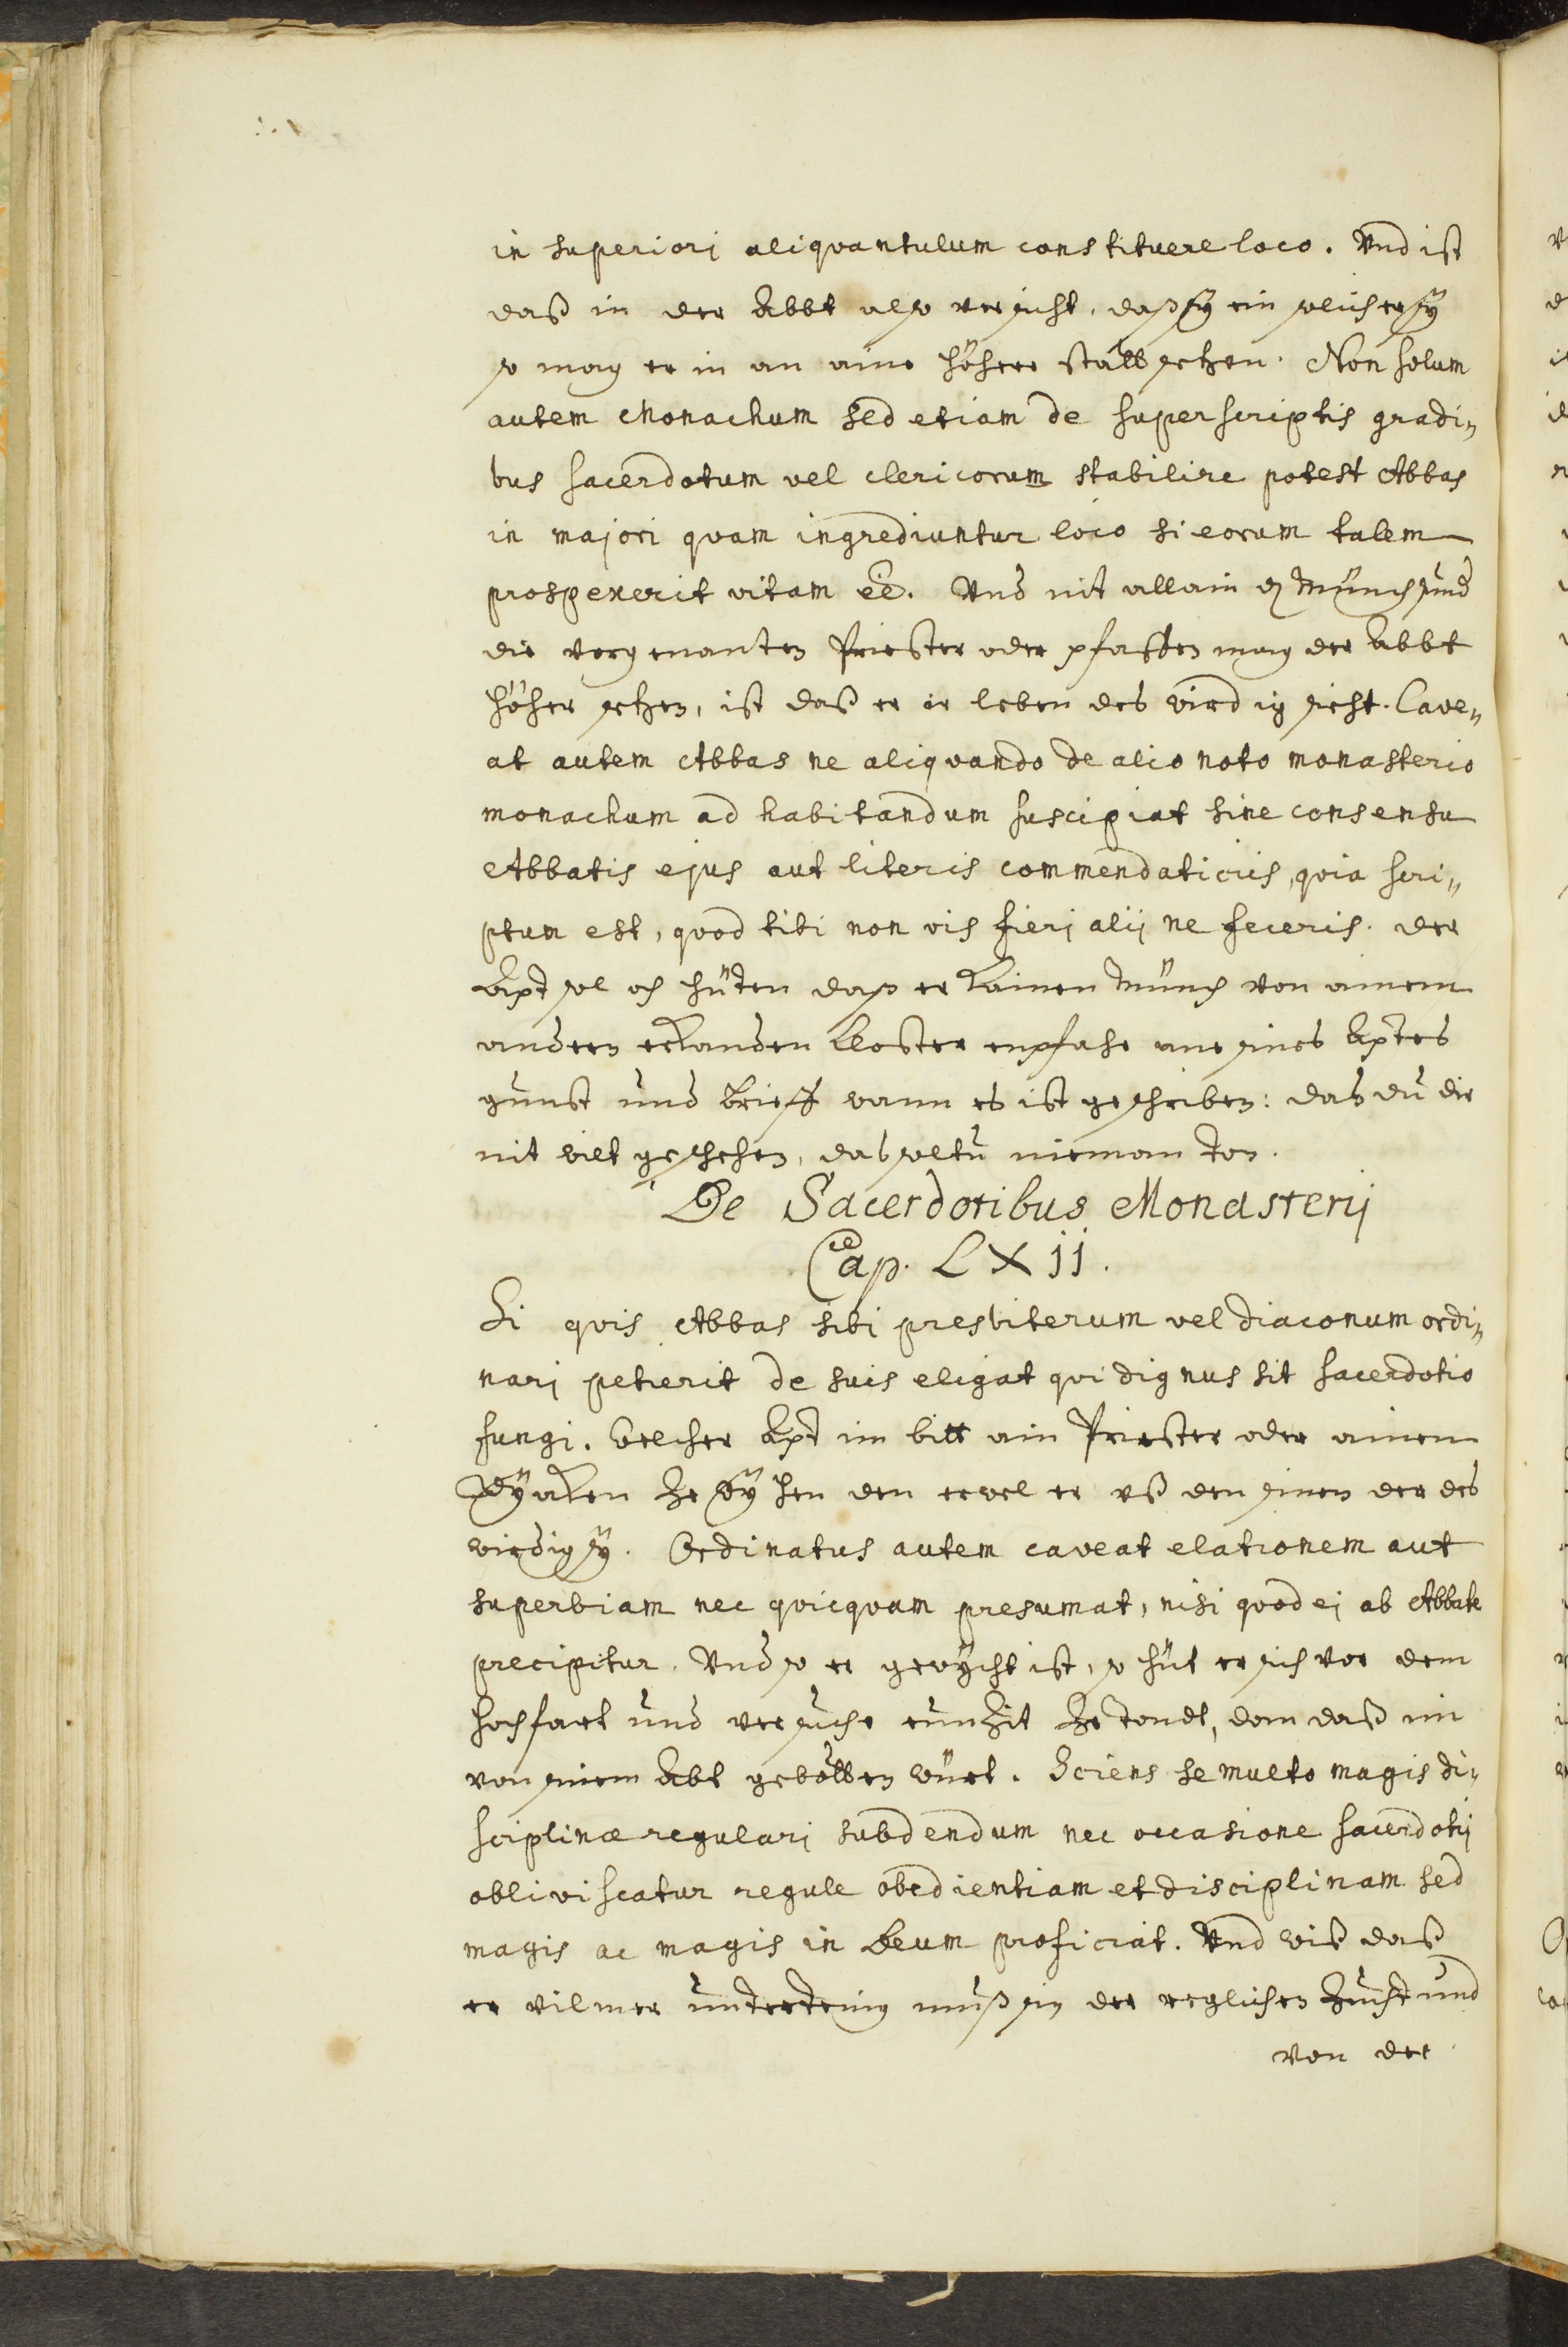 in superiori aliqvantulum constituere loco. Vnd ist
daß in der Abbt also versicht, daß sÿ ein solicher sÿ
so mag er in an aine höhere statt setzen. Non solum
autem Monachum sed etiam de superscriptis gradi„
bus sacerdotum vel clericorum stabilire potest Abbas
in majori qvam ingrediuntur loco si eorum talem
prospexerit vitam eē. Vnd nit allain dz Münch sund
die vorgenanten Priester oder pfaffen mag der Abbt
höher setzen, ist daß er ir leben des wirdig sicht. Cave„
at autem Abbas ne aliqvando de alio noto monasterio
monachum ad habitandum suscipiat sine consensu
Abbatis ejus aut literis commendaticiis, qvia scri„
ptum est, qvod tibi non vis fieri alij ne feceris. der
Apt sol och hüten daß er kainen Münch von ainem
andern erkanden Kloster enpfahe ane sines Aptes
gunst und brieff wann es ist geschriben: das du dir
nit wilt geschehen, das soltu nieman ton.
De Sacerdotibus Monasterij
Cap. LXII.
Si qvis Abbas sibi presbiterum vel diaconum ordi„
nari petierit de suis eligat qvi dignus sit sacerdotio
fungi. Welcher Apt im bitt ain Priester oder ainen
Dÿaken ze wÿhen den erwel er uß den sinen der des
wirdig sÿ. Ordinatus autem caveat elationem aut
superbiam nec qvicqvam presumat, nisi qvod ej ab Abbate
precipitur. Vnd so er gewÿcht ist, so hüt er sich vor dem
hochfart und versuche nunzit ze tondt, dann daß im
von sinem Abt gebotten würt. Sciens se multo magis di„
sciplinæ regulari subdendum nec occasione sacerdotij
obliviscatur regule obedientiam et disciplinam sed
magis ac magis in Deum proficiat. Vnd wiß daß
er vil mer undertenig muß sin der reglichen Zucht und
von der